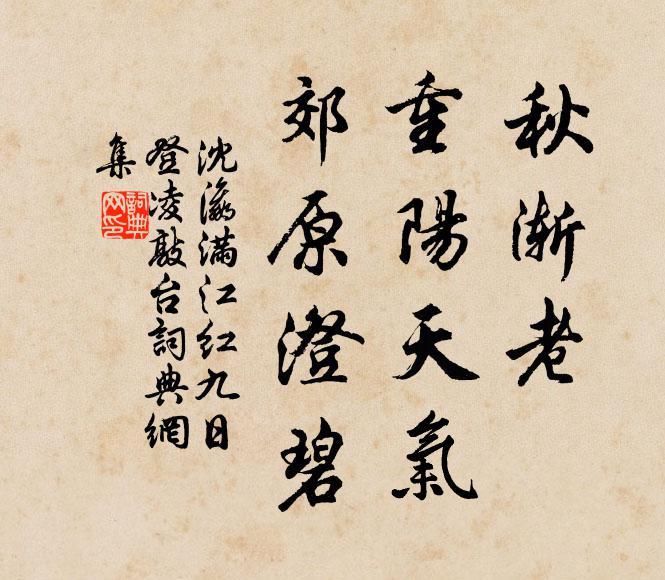 秋漸老
重陽天氣
郊原澄碧
沈瀛滿江红九日
登凌敲台詞典網
集
詞典
网印